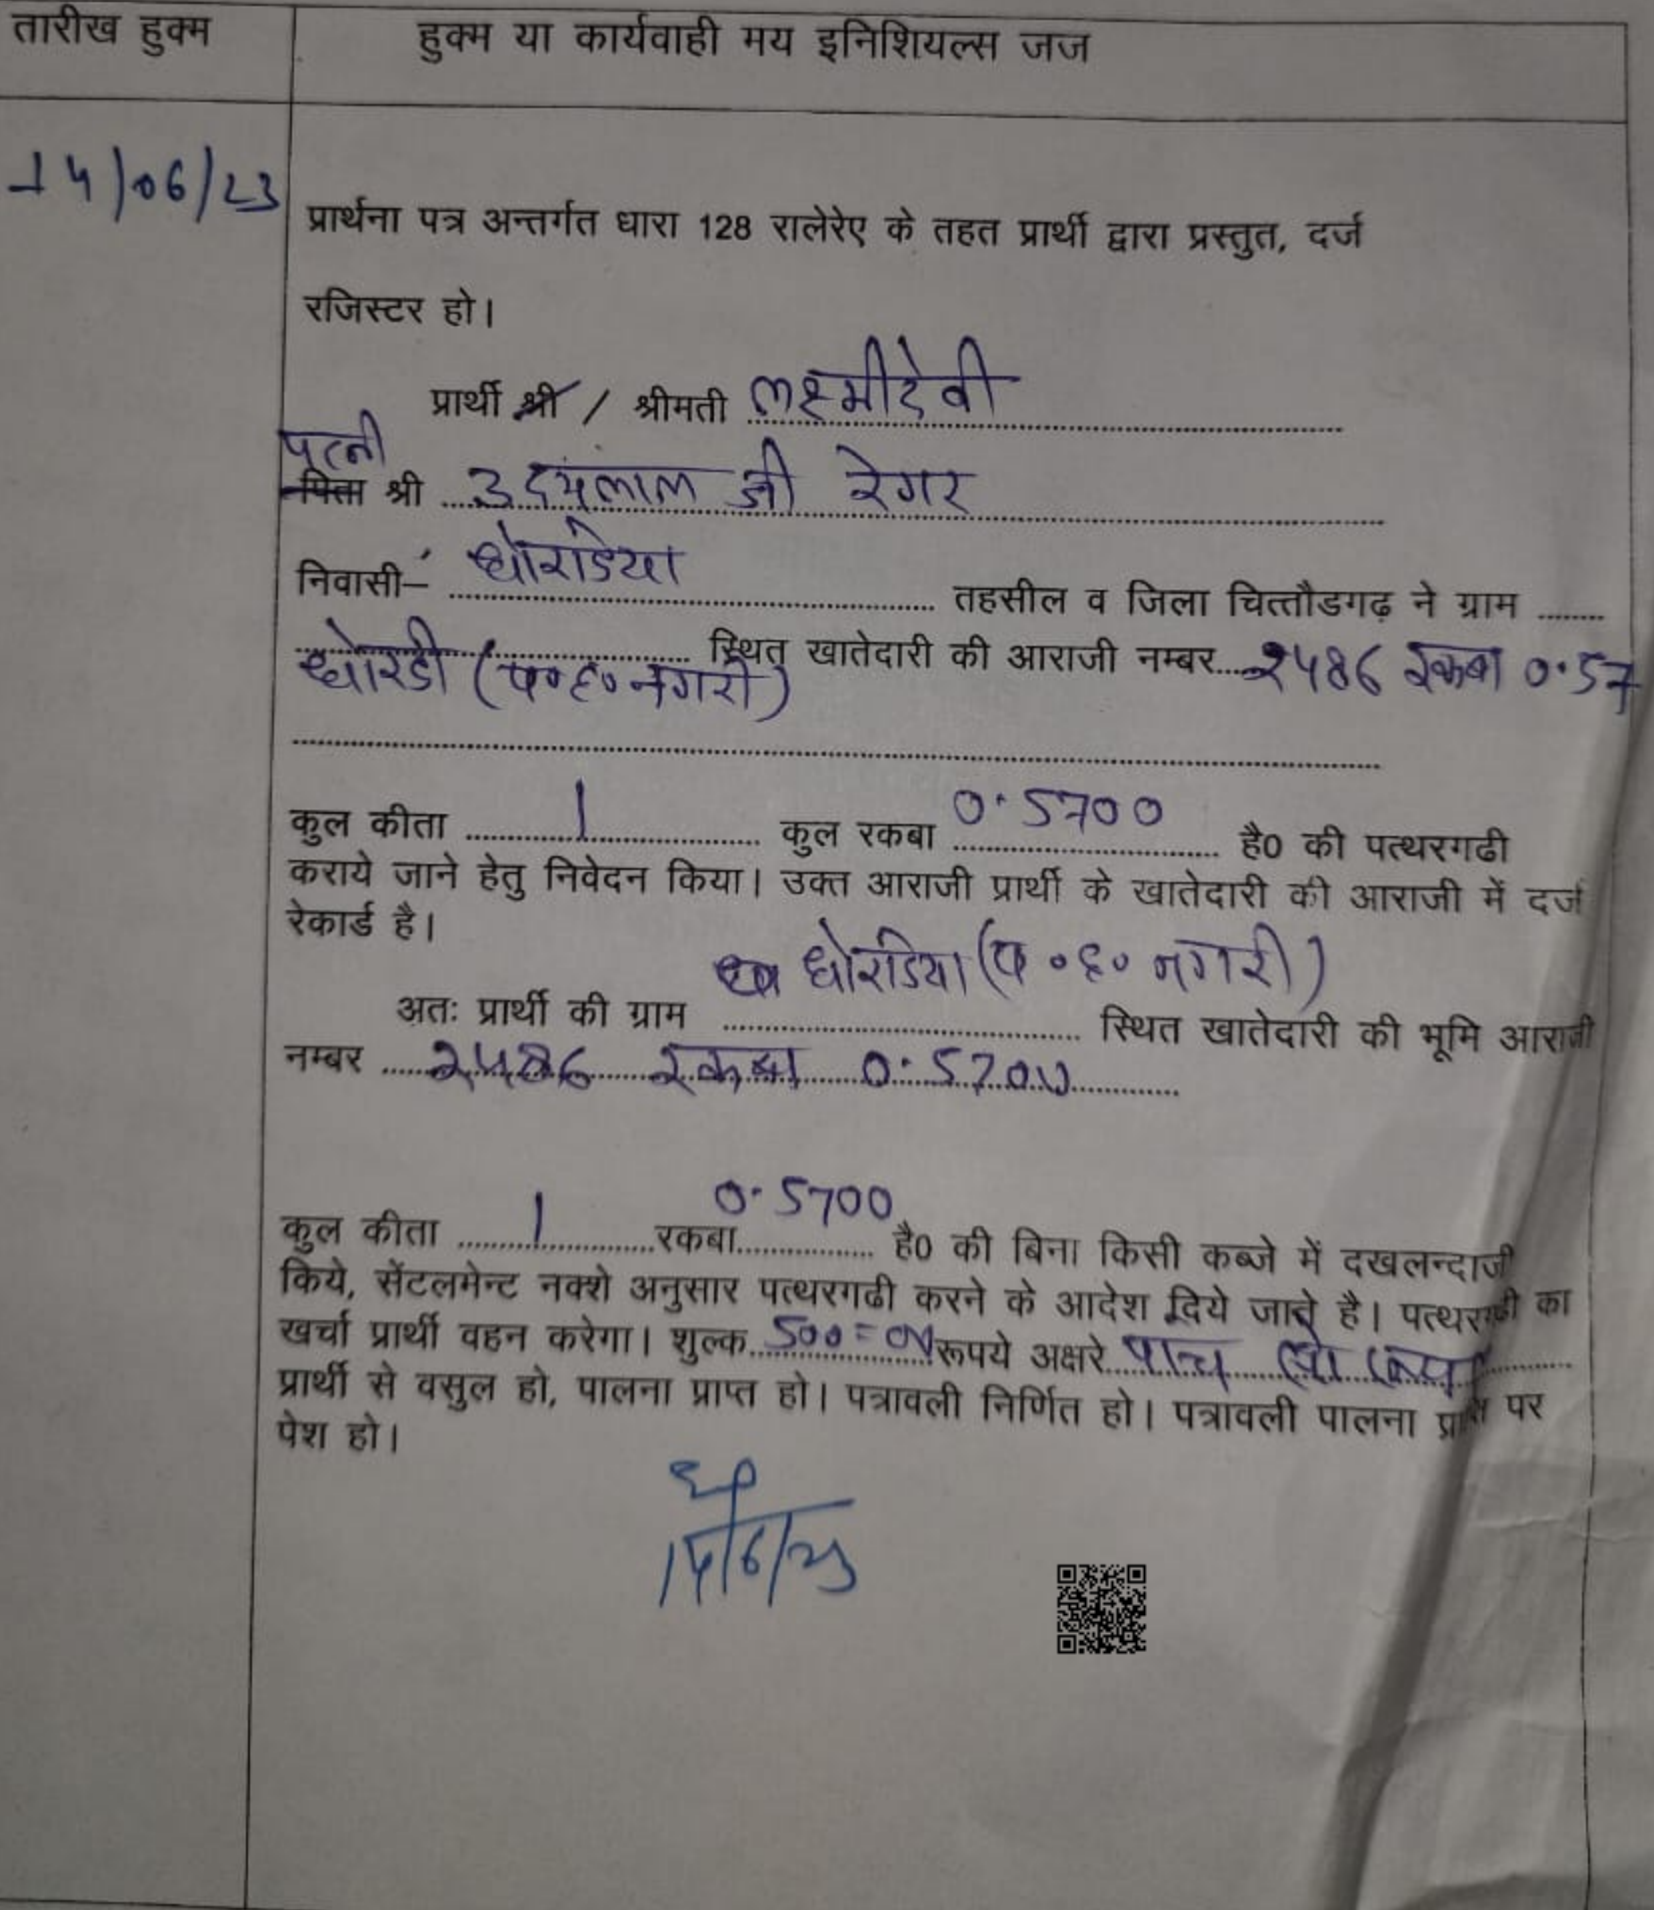 तारीख हुक्म
हुक्म या कार्यवाही मय इनिशियल्स जज
14/06/23
प्रार्थना पत्र अन्तर्गत धारा 128 रालेरेए के तहत प्रार्थी द्वारा प्रस्तुत, दर्ज
रजिस्टर हो।
प्रार्थी श्री / श्रीमती लक्ष्मीदेवी
पत्नी
पिता श्री उदयलाल जी रेगर
निवासी– घोराडिया तहसील व जिला चित्तौडगढ़ ने ग्राम
(प०ह० नगरी) स्थित खातेदारी की आराजी नम्बर 2486 रकबा 0.57
कुल कीता 1 कुल रकबा 0.5700 है0 की पत्थरगढी
कराये जाने हेतु निवेदन किया। उक्त आराजी प्रार्थी के खातेदारी की आराजी में दर्ज
रेकार्ड है।
घोरडिया (प०ह० नगरी)
अतः प्रार्थी की ग्राम स्थित खातेदारी की भूमि आराजी
नम्बर 2486 रकबा 0.5700
कुल कीता 1 रकबा 0.5700 है0 की बिना किसी कब्जे में दखलन्दाजी
किये, सेंटलमेन्ट नक्शे अनुसार पत्थरगढी करने के आदेश दिये जाते है। पत्थरगढी का
खर्चा प्रार्थी वहन करेगा। शुल्क 500=00 रूपये अक्षरे पाच सो रूपये
प्रार्थी से वसुल हो, पालना प्राप्त हो। पत्रावली निर्णित हो। पत्रावली पालना प्राप्त पर
पेश हो।
14/6/23